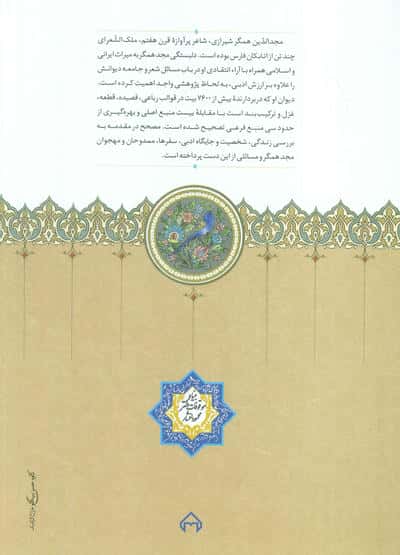 مجدالدّین همگر شیرازی، شاعر پرآوازهٔ قرن هفتم، ملک‌الشّعرای
چند تن از اتابکان فارس بوده است. دلبستگی مجد همگر به میراث ایرانی
و اسلامی همراه با آراء انتقادی او در باب مسائل شعر و جامعه دیوانش
را علاوه بر ارزش ادبی، به لحاظ پژوهشی واجد اهمیت کرده است.
دیوان او که دربردارندهٔ بیش از ۷۶۰۰ بیت در قوالب رباعی، قصیده، قطعه،
غزل و ترکیب‌بند است با مقابلهٔ بیست منبع اصلی و بهره‌گیری از
حدود سی منبع فرعی تصحیح شده است. مصحح در مقدمه به
بررسی زندگی، شخصیت و جایگاه ادبی، سفرها، ممدوحان و مهجوان
مجد همگر و مسائلی از این دست پرداخته است.